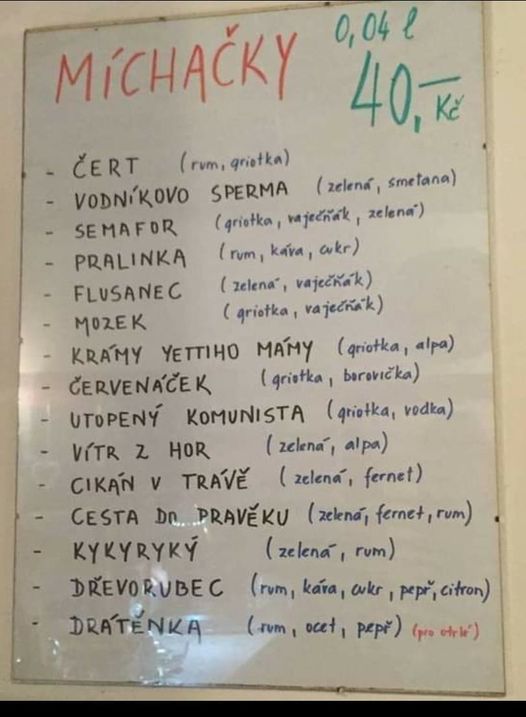 MÍCHAČKY 0,04 l
40,- Kč
- ČERT (rum, griotka)
- VODNÍKOVO SPERMA (zelená, smetana)
- SEMAFOR (griotka, vaječňák, zelená)
- PRALINKA (rum, káva, cukr)
- FLUSANEC (zelená, vaječňák)
- MOZEK (griotka, vaječňák)
- KRÁMY YETTIHO MÁMY (griotka, alpa)
- ČERVENÁČEK (griotka, borovička)
- UTOPENÝ KOMUNISTA (griotka, vodka)
- VÍTR Z HOR (zelená, alpa)
- CIKÁN V TRÁVĚ (zelená, fernet)
- CESTA DO PRAVĚKU (zelená, fernet, rum)
- KYKYRYKÝ (zelená, rum)
- DŘEVORUBEC (rum, káva, cukr, pepř, citron)
- DRÁTĚNKA (rum, ocet, pepř) (pro otrlé)